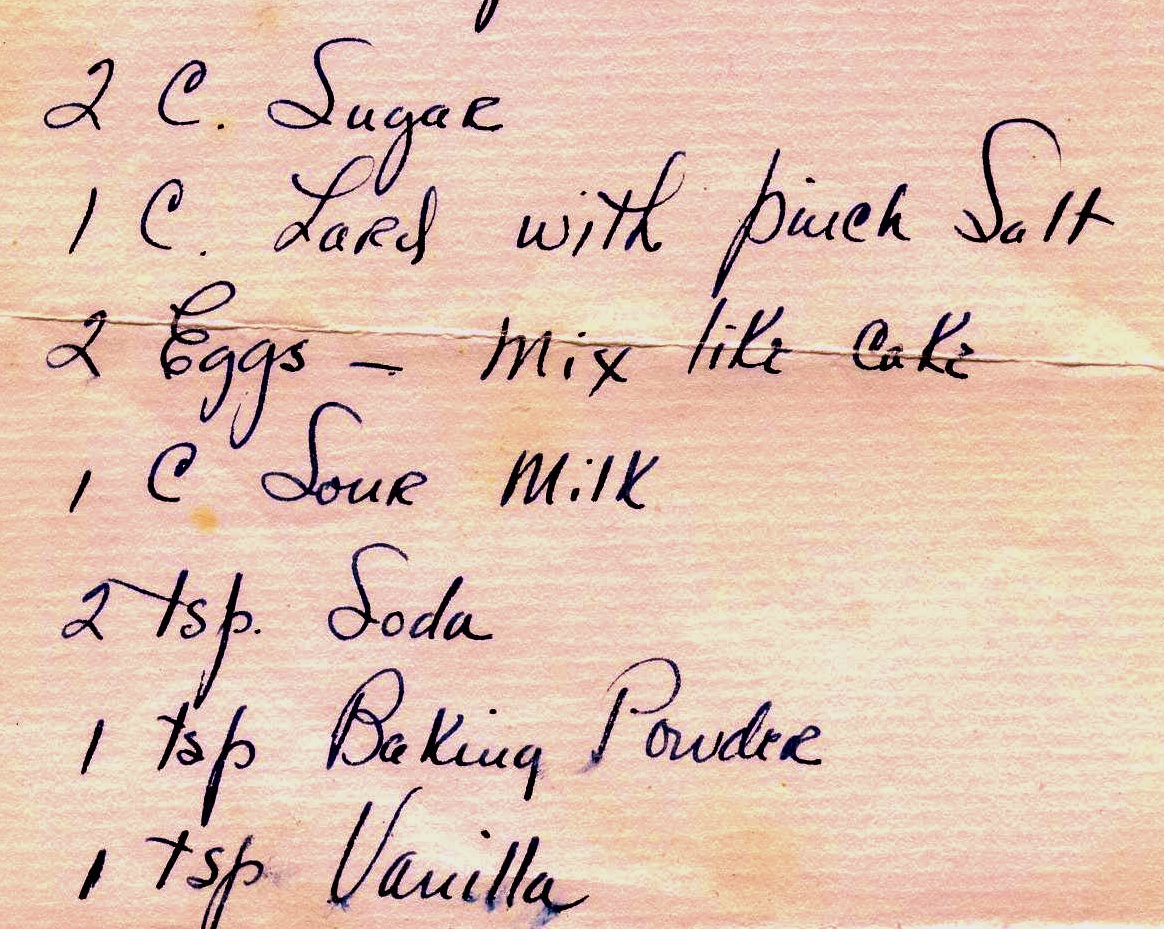 2 C. Sugar
1 C. Lard with pinch Salt
2 Eggs - Mix like Cake
1 C Sour Milk
2 tsp. Soda
1 tsp Baking Powder
1 tsp Vanilla